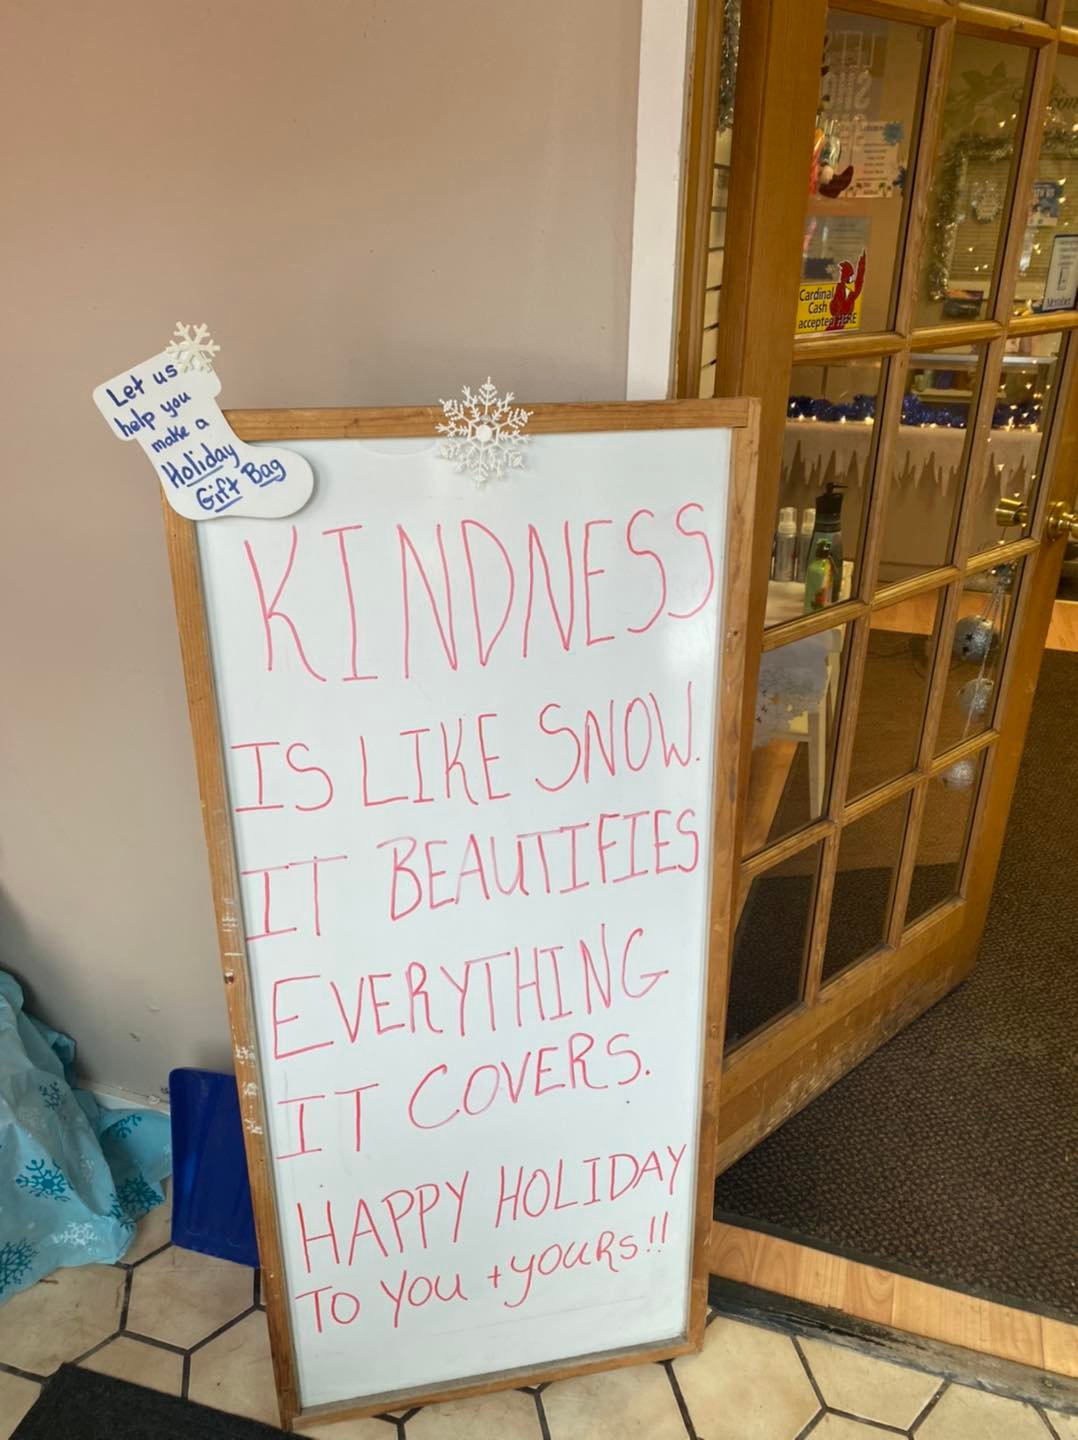 Let us
help you
make a
Holiday
Gift Bag
KINDNESS
IS LIKE SNOW.
IT BEAUTIFIES
EVERYTHING
IT COVERS.
HAPPY HOLIDAY
TO YOU + YOURS!!
Cardinal
Cash
accepted HERE
Member